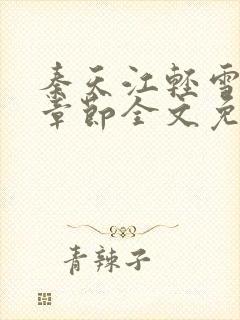 秦天江轻雪
章节全文免
青辣子